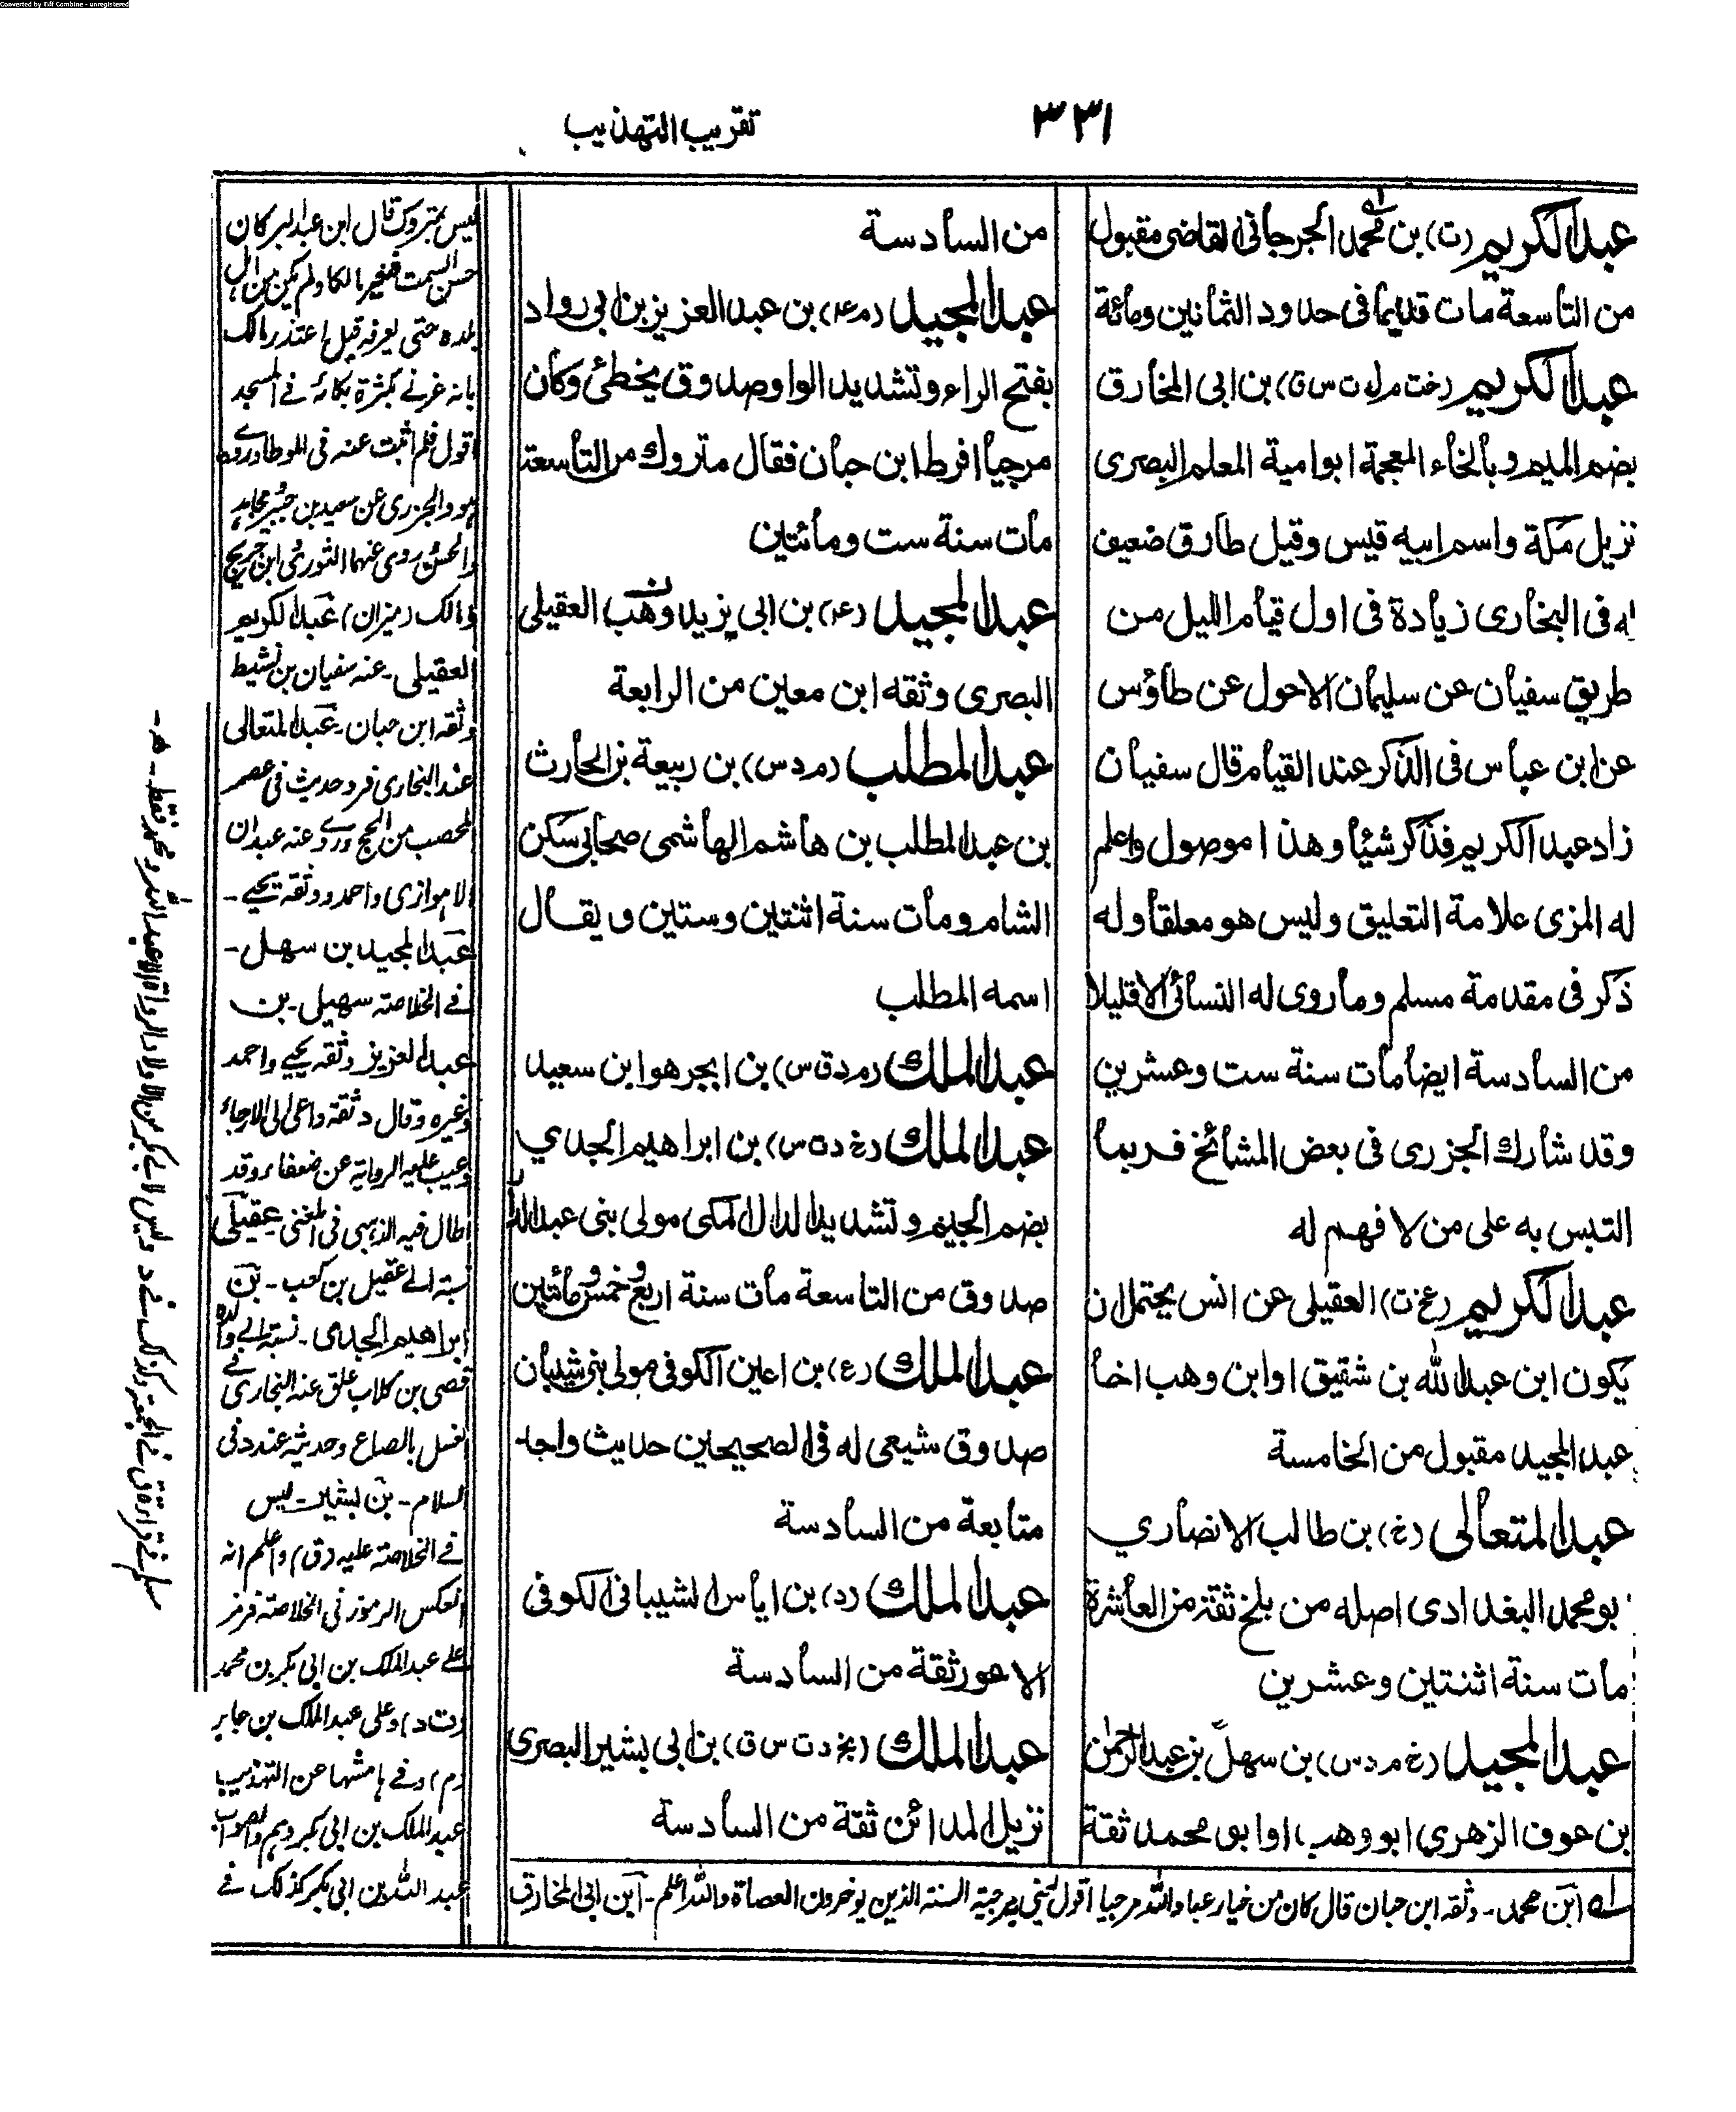 Converted by Tiff Combine - unregistered
٣٣١
تقريب التهذيب
عبد الكريم (ت) بن محمد الجرجاني القاضي مقبول
من التاسعة مات قديما في حدود الثمانين ومائة
عبد الكريم (خت م ل ت س ق) بن ابى المخارق
بضم الميم وبالخاء المعجمة ابو امية المعلم البصرى
نزيل مكة واسم ابيه قيس وقيل طارق ضعيف
له فى البخارى زيادة فى اول قيام الليل من
طريق سفيان عن سليمان الاحول عن طاؤس
عن ابن عباس فى الذكر عند القيام قال سفيان
زاد عبد الكريم فذكر شيئا وهذا موصول واعلم
له المزى علامة التعليق وليس هو معلقا وله
ذكر فى مقدمة مسلم وما روى له النسائى الا قليلا
من السادسة ايضا مات سنة ست وعشرين
وقد شارك الجزرى فى بعض المشائخ فربما
التبس به على من لا فهم له
عبد الكريم (عخ ت) العقيلى عن انس يحتمل ان
يكون ابن عبد الله بن شقيق او ابن وهب اخا
عبد المجيد مقبول من الخامسة
عبد المتعالى (خ) بن طالب الانصاري
بو محمد البغدادى اصله من بلخ ثقة من العاشرة
مات سنة اثنتين وعشرين
عبد المجيد (خ م د س) بن سهل بن عبد الرحمن
بن عوف الزهري ابو وهب او ابو محمد ثقة
من السادسة
عبد المجيد (م عہ) بن عبد العزيز بن ابى رواد
بفتح الراء وتشديد الواو صدوق يخطئ وكان
مرجيا افرط ابن حبان فقال متروك من التاسعة
مات سنة ست ومائتين
عبد المجيد (عہ) بن ابى يزيد وهب العقيلى
البصرى وثقه ابن معين من الرابعة
عبد المطلب (م د س) بن ربيعة بن الحارث
بن عبد المطلب بن هاشم الهاشمى صحابى سكن
الشام ومات سنة اثنتين وستين ويقال
اسمه المطلب
عبد الملك (م د ق س) بن ابجر هو ابن سعيد
عبد الملك (خ د ت س) بن ابراهيم الجدي
بضم الجيم وتشديد الدال المكى مولى بنى عبد الدار
صدوق من التاسعة مات سنة اربع او خمس ومائتين
عبد الملك (ع) بن اعين الكوفى مولى بنى شيبان
صدوق شيعى له فى الصحيحين حديث واحد
متابعة من السادسة
عبد الملك (د) بن اياس الشيبانى الكوفى
الاعور ثقة من السادسة
عبد الملك (بخ د ت س ق) بن ابى بشير البصرى
نزيل المدائن ثقة من السادسة
ليس بمتروك قال ابن عبد البر كان
حسن السمت فغر مالكا ولم يكن من اهل
بلده حتى يعرفه قيل اعتذر مالك
بانه غرنے بكثرة بكائہ فے المسجد
اقول فلم اثبت عنه فى الموطا وروے
هو والجزرى عن سعيد بن جبير ومجاهد
والحسن روى عنهما الثورى وابن جريج
ومالك (ميزان) عبد الكريم
العقيلى - عنه سفيان بن نشيط
وثقه ابن حبان - عبد المتعالى
عند البخارى فرد حديث فى عصر
المحصب من الحج ورے وعنه عبدان
الاهوازى واحمد ووثقه يحيے -
عبد المجيد بن سهل -
فے الخلاصة سهيل - بن
عبد العزيز وثقه يحيے واحمد
وغيره وقال د ثقة داعى الى الارجاء
وعيب عليه الرواية عن ضعفاء وقد
اطال فيه الذهبى فى المغنى - عقيلى
نسبة الے عقيل بن كعب - بن
ابراهيم الجدى - نسبة الے والده
قصى بن كلاب علق عنه البخارى فے
الغسل بالصاع وحديثه عند د فى
السلام - بن بشير - ليس
فے الخلاصة عليه (ق) واعلم انه
انعكس الرموز فى الخلاصة فرمز
علے عبد الملك بن ابى بكر بن محمد
(ت د) وعلى عبد الملك بن جابر
(م) وفے هامشها عن التهذيب
عبد الملك بن ابى بكر وهم والصواب
عبد الله بن ابى بكر كذلك فے
ابن محمد - وثقه ابن حبان قال كان من خيار عباد الله مرجيا اقول يعنى مرجية السنة الذين يؤخرون العصاة والله اعلم - ابن ابى المخارق